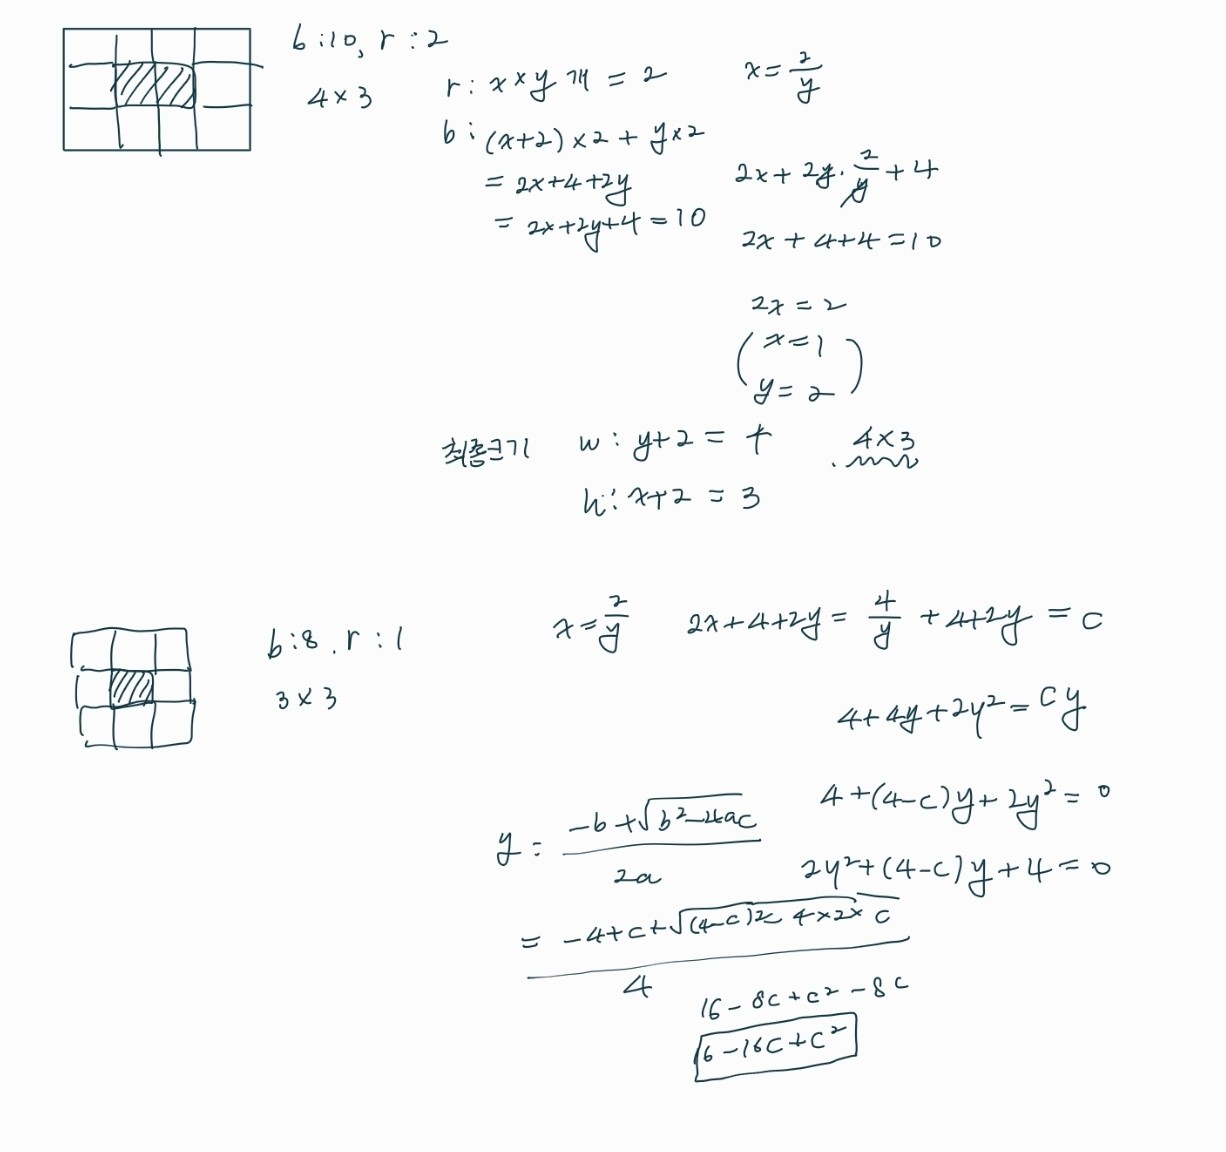 b:10, r:2
4×3
r: x×y개 = 2
x = 2/y
b: (x+2)×2 + y×2
= 2x+4+2y
= 2x+2y+4 = 10
2x + 2y·2/y + 4
2x + 4+4 = 10
2x = 2
( x = 1
y = 2 )
최종크기 w: y+2 = 4
4×3
h: x+2 = 3
b:8, r:1
3×3
x = 2/y
2x+4+2y = 4/y + 4+2y = c
4+4y+2y² = cy
4+(4-c)y+2y² = 0
2y²+(4-c)y+4 = 0
y = (-b+√(b²-4ac))/2a
= (-4+c+√((4-c)2 4×2×c))/4
16-8c+c²-8c
16-16c+c²